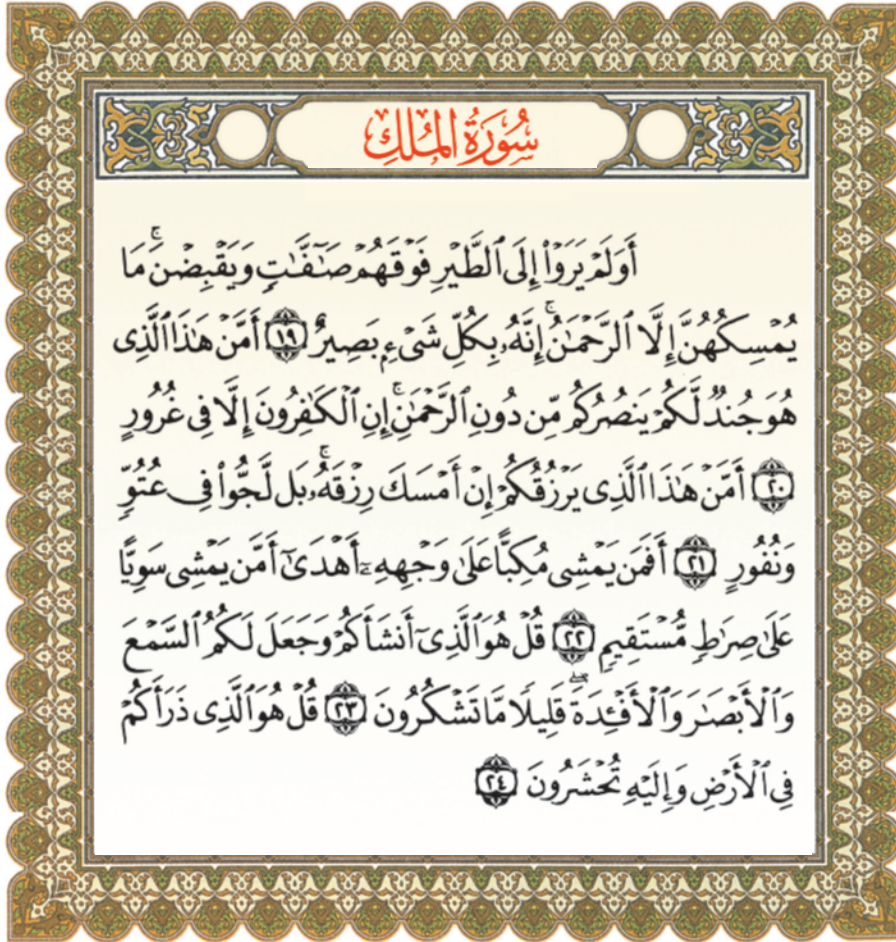 سُورَةُ الْمُلْكِ
أَوَلَمْ يَرَوْا۟ إِلَى ٱلطَّيْرِ فَوْقَهُمْ صَـٰٓفَّـٰتٍ وَيَقْبِضْنَ ۚ مَا
يُمْسِكُهُنَّ إِلَّا ٱلرَّحْمَـٰنُ ۚ إِنَّهُۥ بِكُلِّ شَىْءٍۭ بَصِيرٌ ﴿١٩﴾ أَمَّنْ هَـٰذَا ٱلَّذِى
هُوَ جُندٌ لَّكُمْ يَنصُرُكُم مِّن دُونِ ٱلرَّحْمَـٰنِ ۚ إِنِ ٱلْكَـٰفِرُونَ إِلَّا فِى غُرُورٍ
﴿٢٠﴾ أَمَّنْ هَـٰذَا ٱلَّذِى يَرْزُقُكُمْ إِنْ أَمْسَكَ رِزْقَهُۥ ۚ بَل لَّجُّوا۟ فِى عُتُوٍّ
وَنُفُورٍ ﴿٢١﴾ أَفَمَن يَمْشِى مُكِبًّا عَلَىٰ وَجْهِهِۦٓ أَهْدَىٰٓ أَمَّن يَمْشِى سَوِيًّا
عَلَىٰ صِرَٰطٍ مُّسْتَقِيمٍ ﴿٢٢﴾ قُلْ هُوَ ٱلَّذِىٓ أَنشَأَكُمْ وَجَعَلَ لَكُمُ ٱلسَّمْعَ
وَٱلْأَبْصَـٰرَ وَٱلْأَفْـِٔدَةَ ۖ قَلِيلًا مَّا تَشْكُرُونَ ﴿٢٣﴾ قُلْ هُوَ ٱلَّذِى ذَرَأَكُمْ
فِى ٱلْأَرْضِ وَإِلَيْهِ تُحْشَرُونَ ﴿٢٤﴾